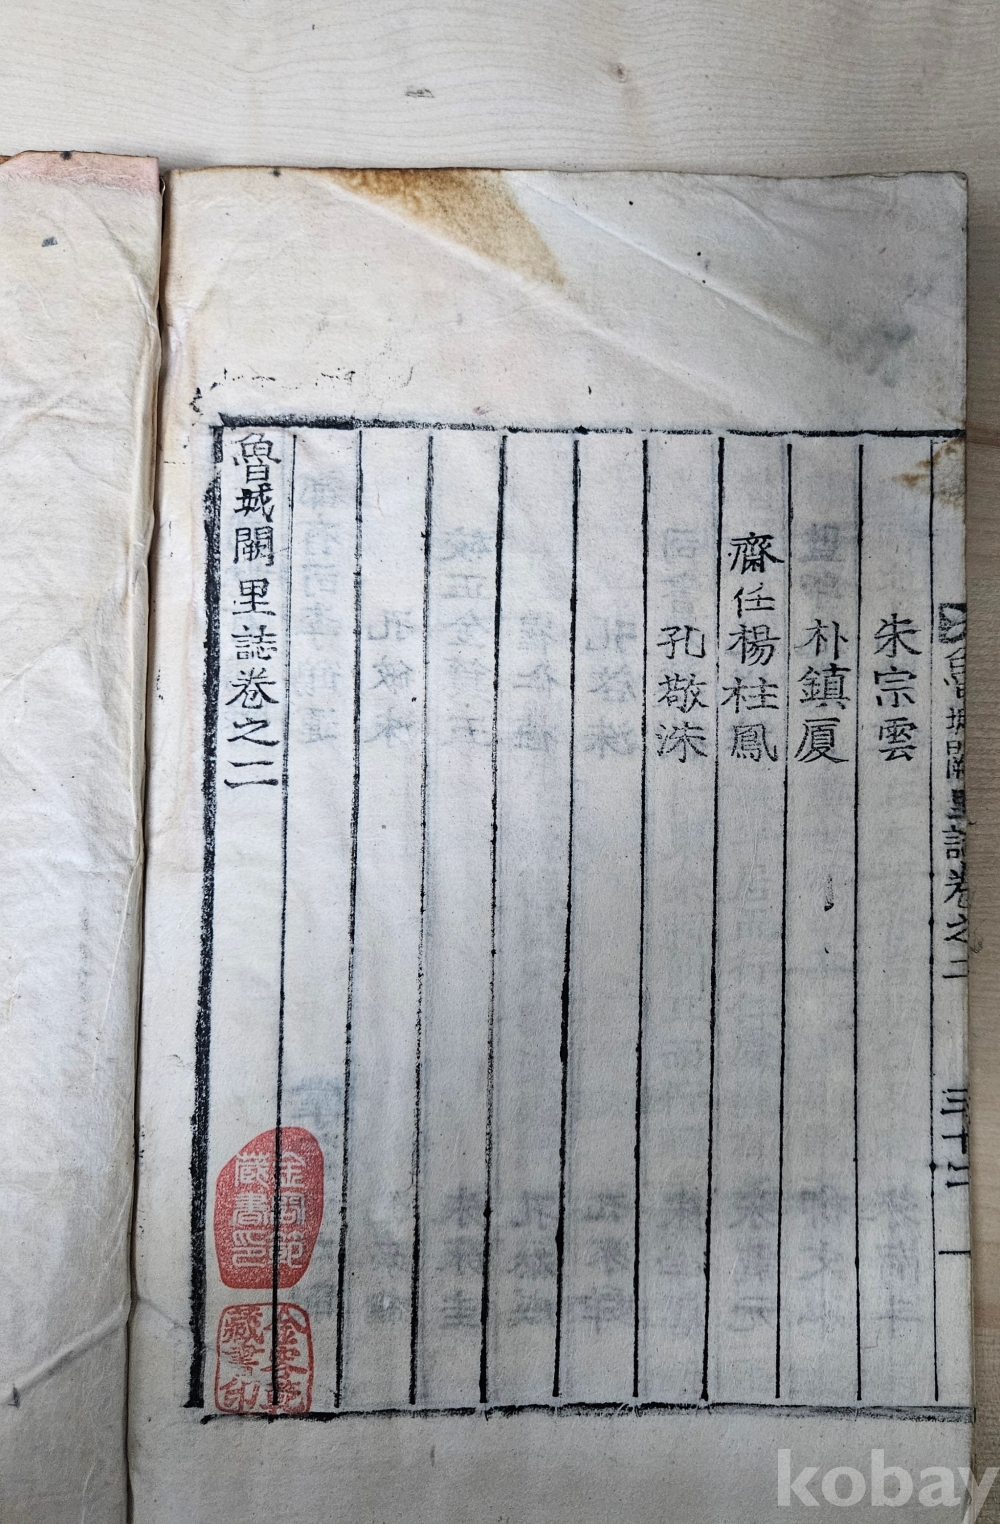 魯城闕里誌卷之二
三十二
朱宗雲
朴鎮厦
齋任楊柱鳳
孔敬洙
魯城闕里誌卷之二
藏書印
藏書印
kobay